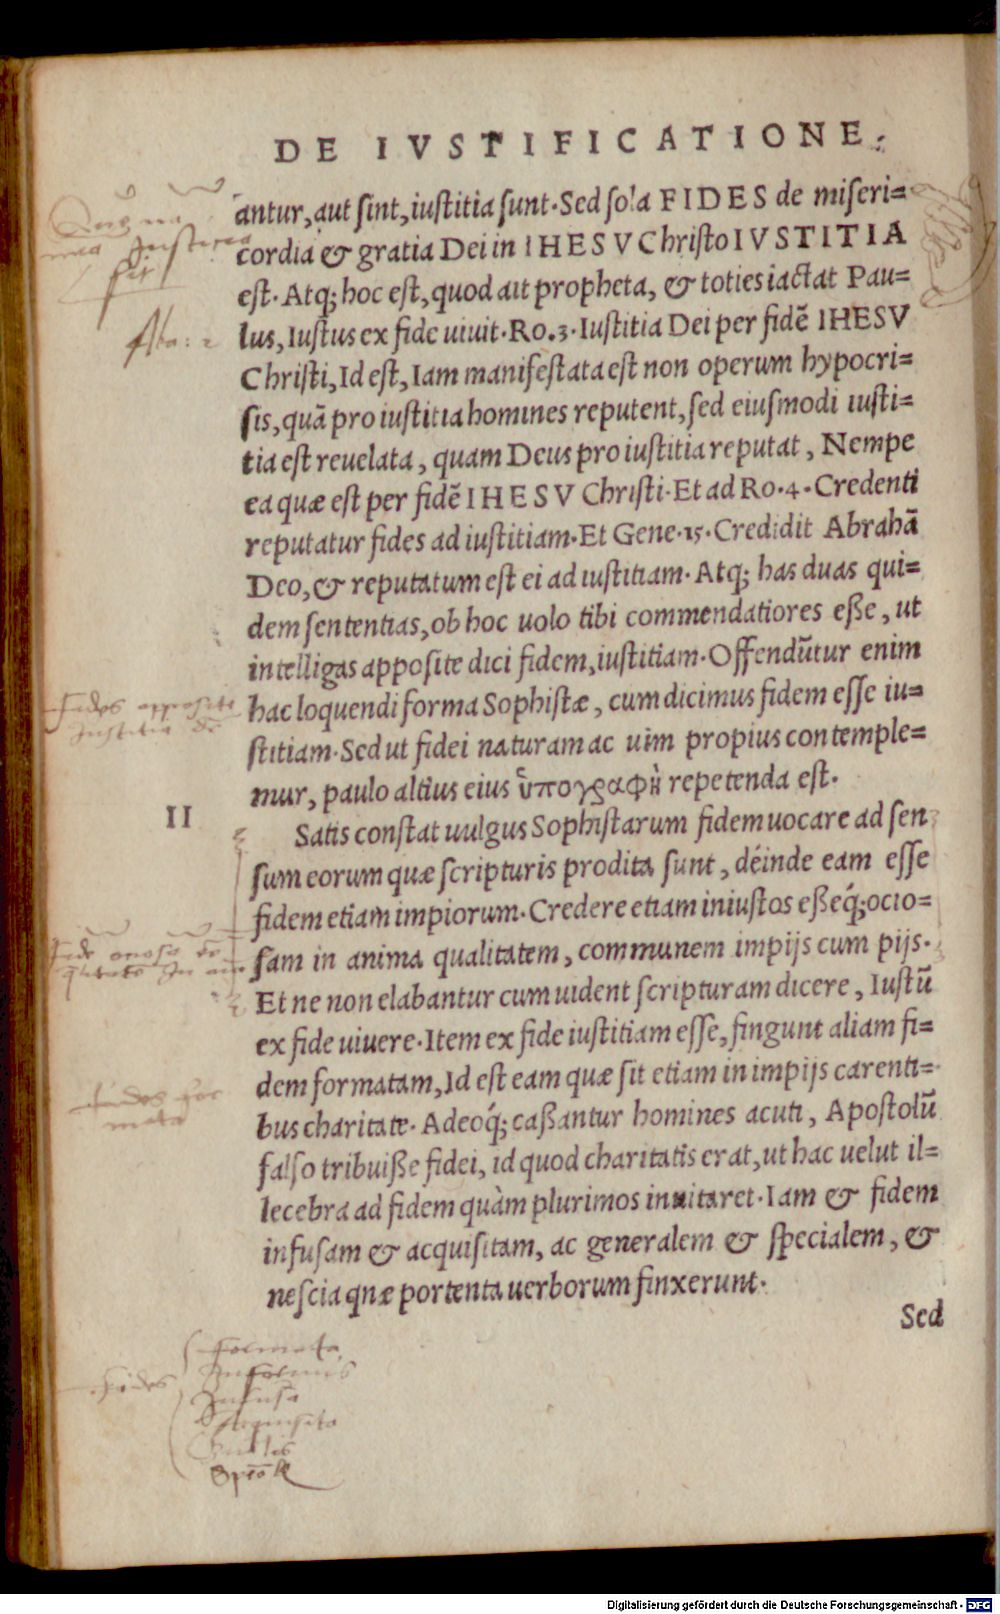 DE IVSTIFICATIONE.
antur, aut ſint, iuſtitia ſunt. Sed ſola FIDES de miſeri=
cordia & gratia Dei in IHESV Chriſto IVSTITIA
eſt. Atq; hoc eſt, quod ait propheta, & toties iactat Pau=
lus, Iuſtus ex fide uiuit. Ro.3. Iuſtitia Dei per fidē IHESV
Chriſti, Id eſt, Iam manifeſtata eſt non operum hypocri=
ſis, quā pro iuſtitia homines reputent, ſed eiuſmodi iuſti=
tia eſt reuelata, quam Deus pro iuſtitia reputat, Nempe
ea quæ eſt per fidē IHESV Chriſti. Et ad Ro.4. Credenti
reputatur fides ad iuſtitiam. Et Gene.15. Credidit Abrahā
Deo, & reputatum eſt ei ad iuſtitiam. Atq; has duas qui=
dem ſententias, ob hoc uolo tibi commendatiores eße, ut
intelligas appoſite dici fidem, iuſtitiam. Offendūtur enim
hac loquendi forma Sophiſtæ, cum dicimus fidem eſſe iu=
ſtitiam. Sed ut fidei naturam ac uim propius contemple=
mur, paulo altius eius ὑπογραφὴ repetenda eſt.
II
Satis conſtat uulgus Sophiſtarum fidem uocare ad ſen
ſum eorum quæ ſcripturis prodita ſunt, déinde eam eſſe
fidem etiam impiorum. Credere etiam iniuſtos eßeq́; ocio=
ſam in anima qualitatem, communem impijs cum pijs.
Et ne non elabantur cum uident ſcripturam dicere, Iuſtū
ex fide uiuere. Item ex fide iuſtitiam eſſe, fingunt aliam fi=
dem formatam, Id eſt eam quæ ſit etiam in impijs carenti=
bus charitate. Adeoq́; caßantur homines acuti, Apoſtolū
falſo tribuiße fidei, id quod charitatis erat, ut hac uelut il=
lecebra ad fidem quàm plurimos inuitaret. Iam & fidem
infuſam & acquiſitam, ac generalem & ſpecialem, &
neſcia qnæ portenta uerborum finxerunt.
Sed
fides
formata
Informis
Infusa
Acquisita
Digitalisierung gefördert durch die Deutsche Forschungsgemeinschaft - DFG